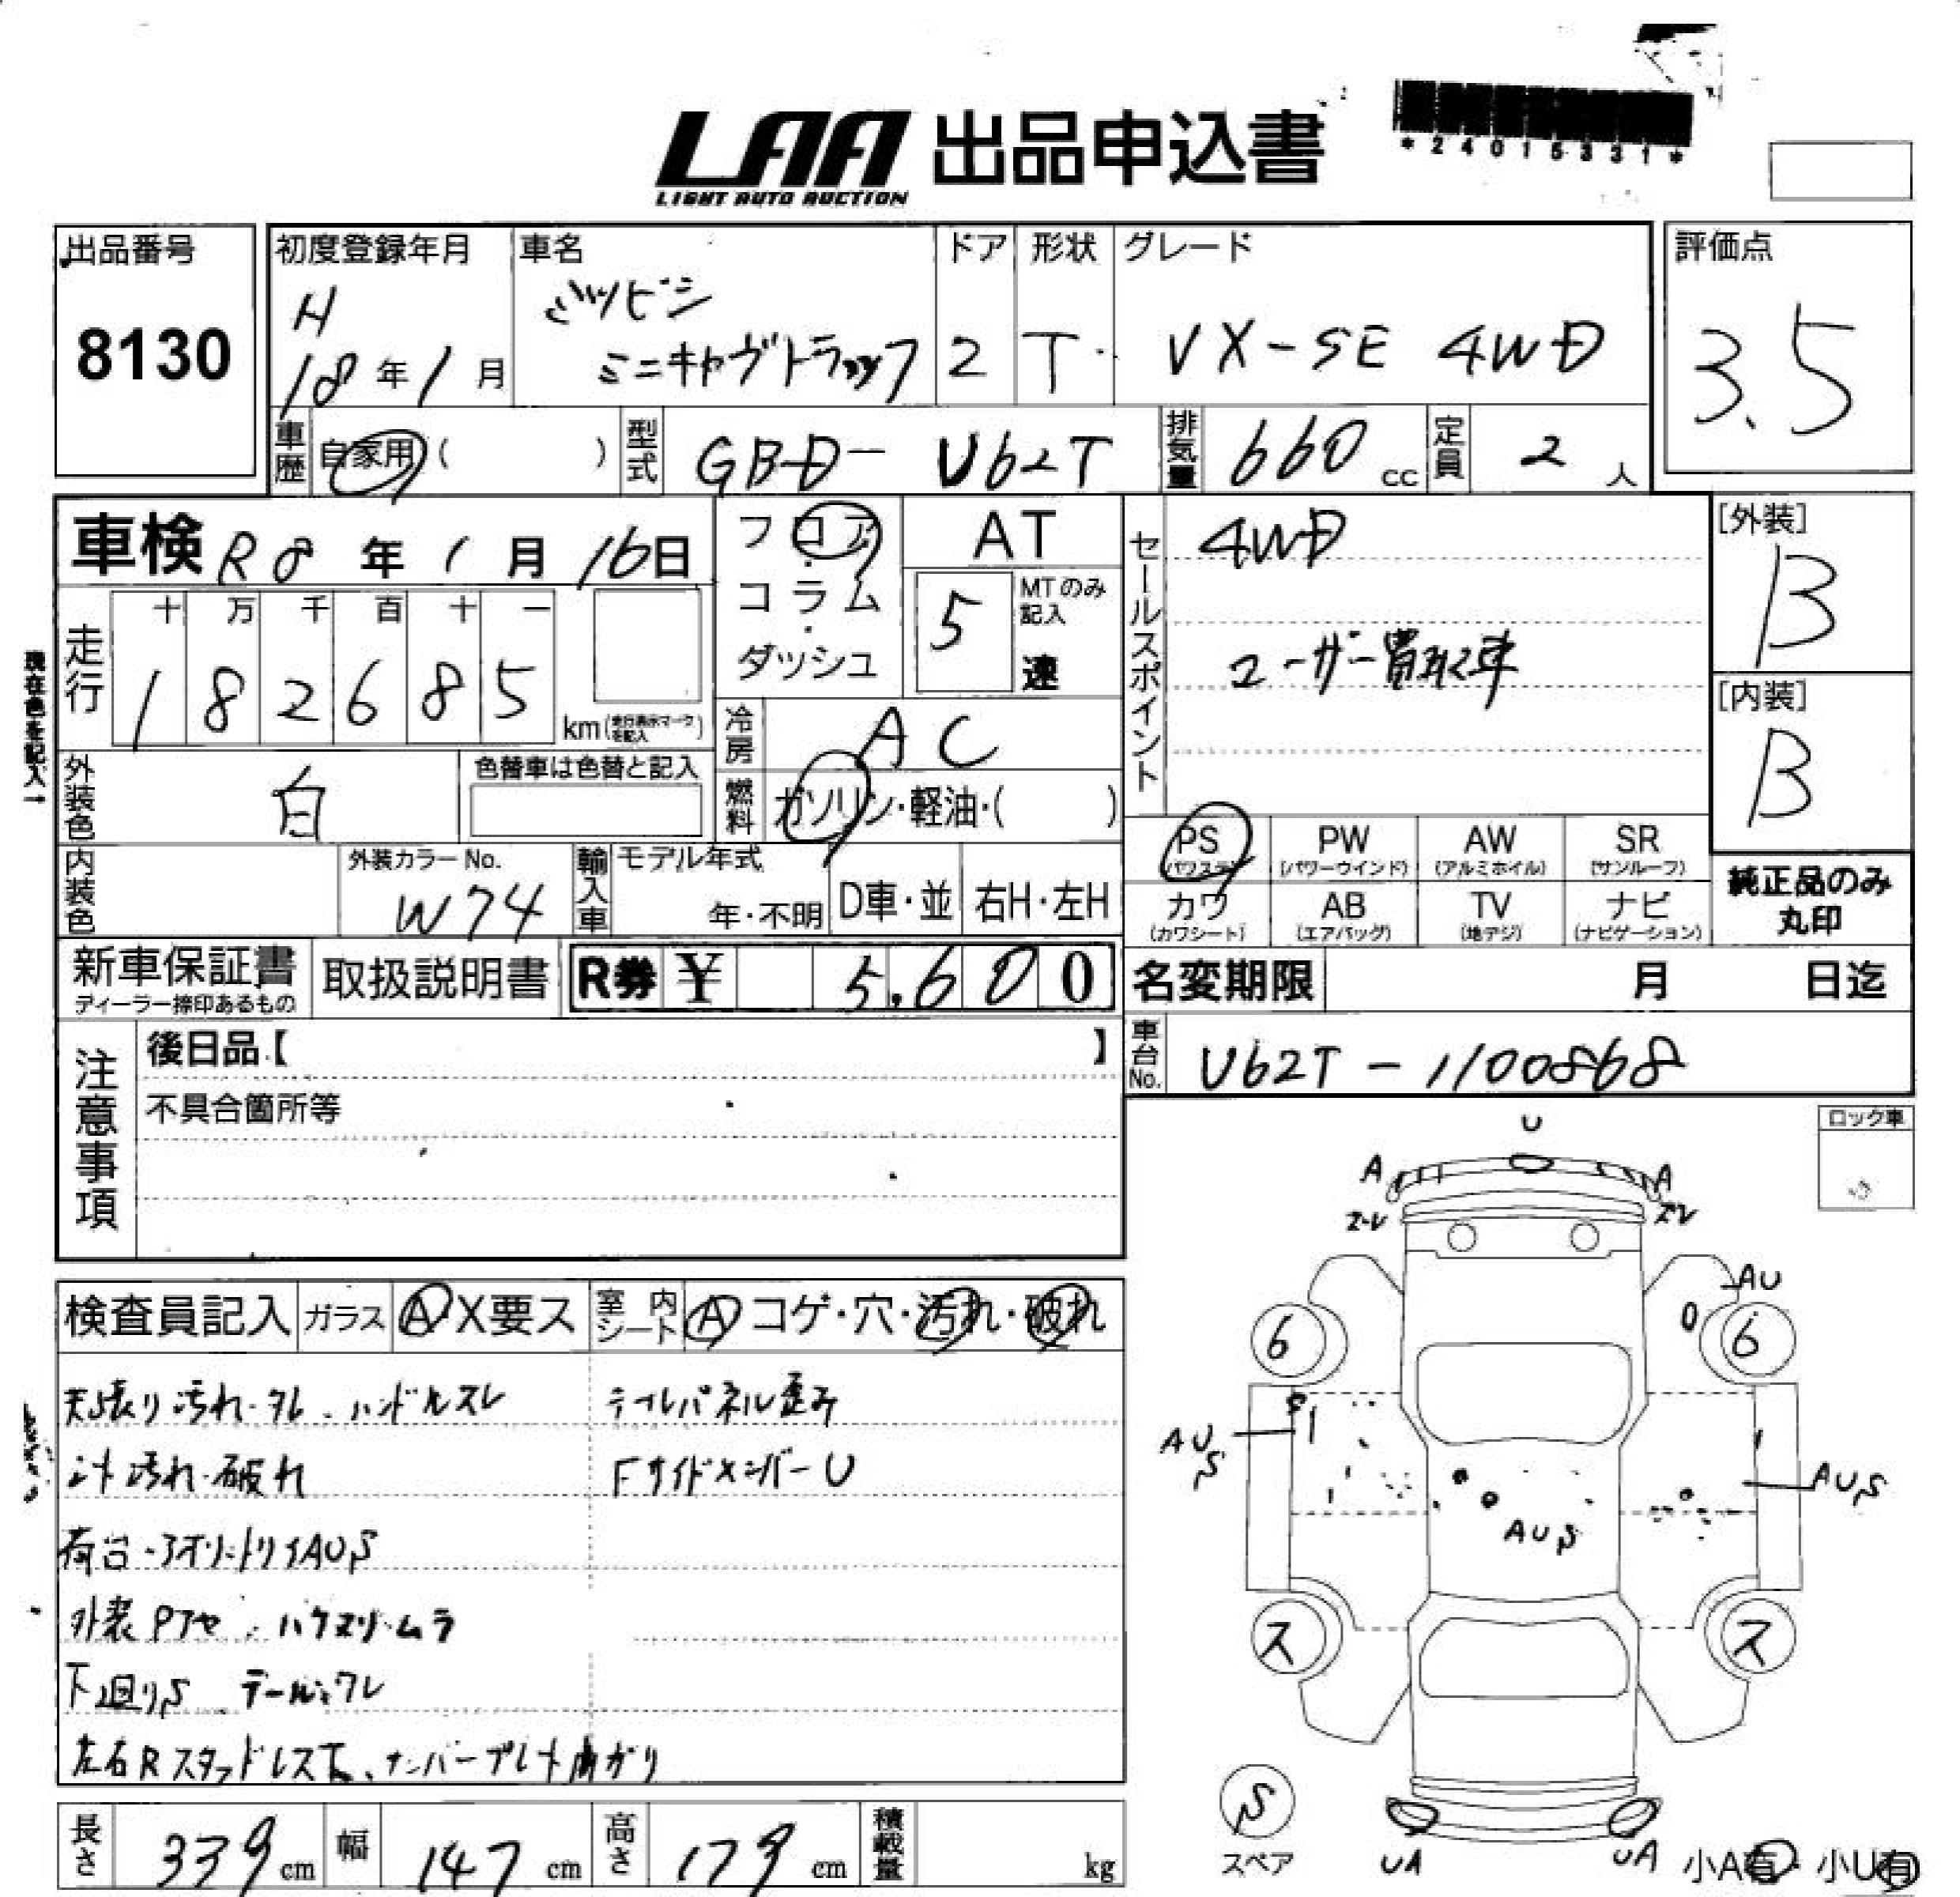 LAA 出品申込書
LIGHT AUTO AUCTION
*24015331*
出品番号
8130
初度登録年月
H
18年1月
車名
ミツビシ
ミニキャヴトラック
ドア
2
形状
T
グレード
VX-SE 4WD
評価点
3.5
車歴
自家用( )
型式
GBD-U62T
排気量
660cc
定員
2人
車検 R8年1月16日
フロア・コラム・ダッシュ
AT
5
MTのみ記入
速
セールスポイント
4WD
ユーザー買取車
[外装]
B
[内装]
B
現在色を記入→
走行
十 万 千 百 十 一
1 8 2 6 8 5
km(走行表示マークを記入)
冷房
AC
燃料
ガソリン・軽油・( )
外装色
白
色替車は色替と記入
内装色
外装カラーNo.
W74
輸入車
モデル年式
年・不明
D車・並
右H・左H
PS
(パワステ)
PW
(パワーウインド)
AW
(アルミホイル)
SR
(サンルーフ)
カワ
(カワシート)
AB
(エアバッグ)
TV
(地デジ)
ナビ
(ナビゲーション)
純正品のみ
丸印
新車保証書
ディーラー捺印あるもの
取扱説明書
R券 ¥ 5,600
名変期限 月 日迄
車台No.
U62T-1100868
注意事項
後日品【 】
不具合箇所等
ロック車
検査員記入
ガラス
A X要ス
室内シート
A コゲ・穴・汚れ・破れ
天張り汚れ・タレ、ハンドルスレ
シート汚れ・破れ
荷台・アオリ・トリイAUS
外装Pアセ、ハケヌリ・ムラ
下廻りS テールワレ
左右Rスタッドレス、ナンバープレート曲がり
テールパネル歪み
FサイドメンバーU
U
A
A
AU
6
6
AUS
AUS
AUS
ス
ス
S
スペア
UA
UA
小A有・小U有
長さ
339cm
幅
147cm
高さ
179cm
積載量
kg